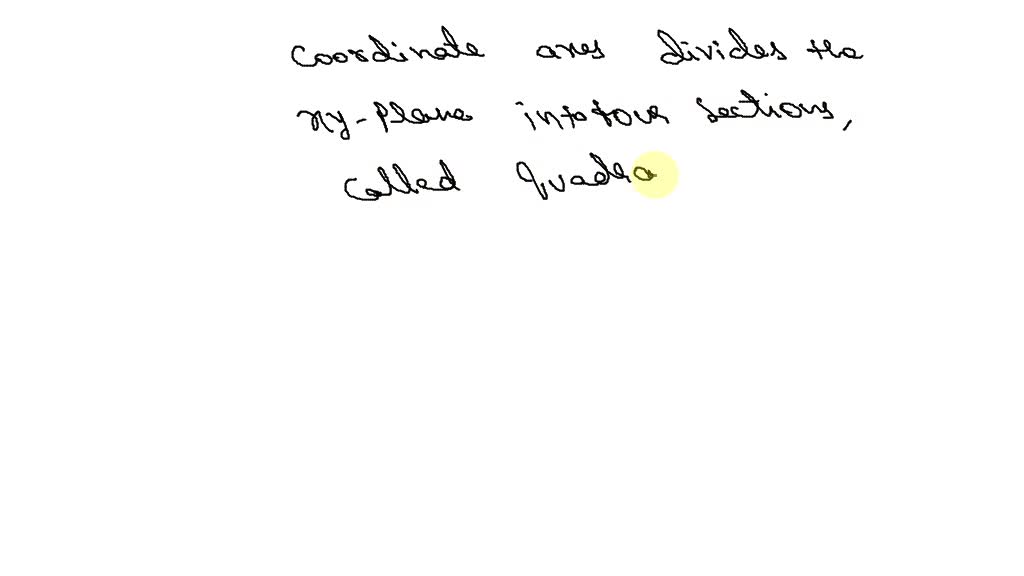 coordinate axes divides the
xy-plane into four sections,
called quadra